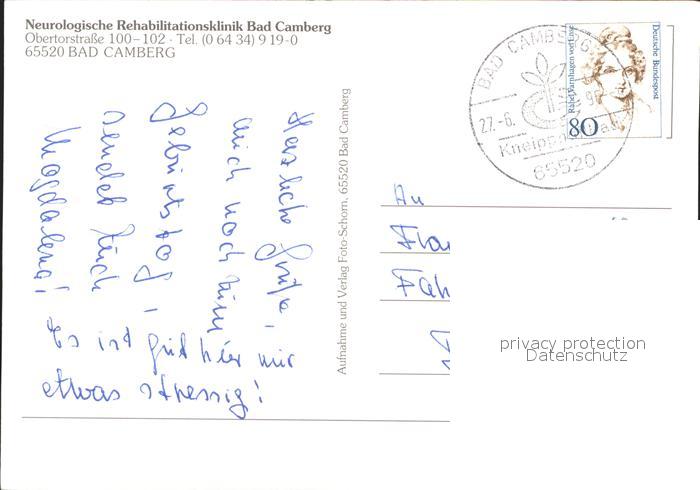 Neurologische Rehabilitationsklinik Bad Camberg
Obertorstraße 100–102 · Tel. (0 64 34) 9 19-0
65520 BAD CAMBERG
Herzliche Grüße,
auch noch zum
Geburtstag,
sendet Euch
Magdalena!
Es ist gut hier nur
etwas stressig!
Aufnahme und Verlag Foto-Schorn, 65520 Bad Camberg
BAD CAMBERG
27.-6.
Kneipp
65520
Deutsche Bundespost
Rahel Varnhagen von Ense
80
An
Fam
privacy protection
Datenschutz